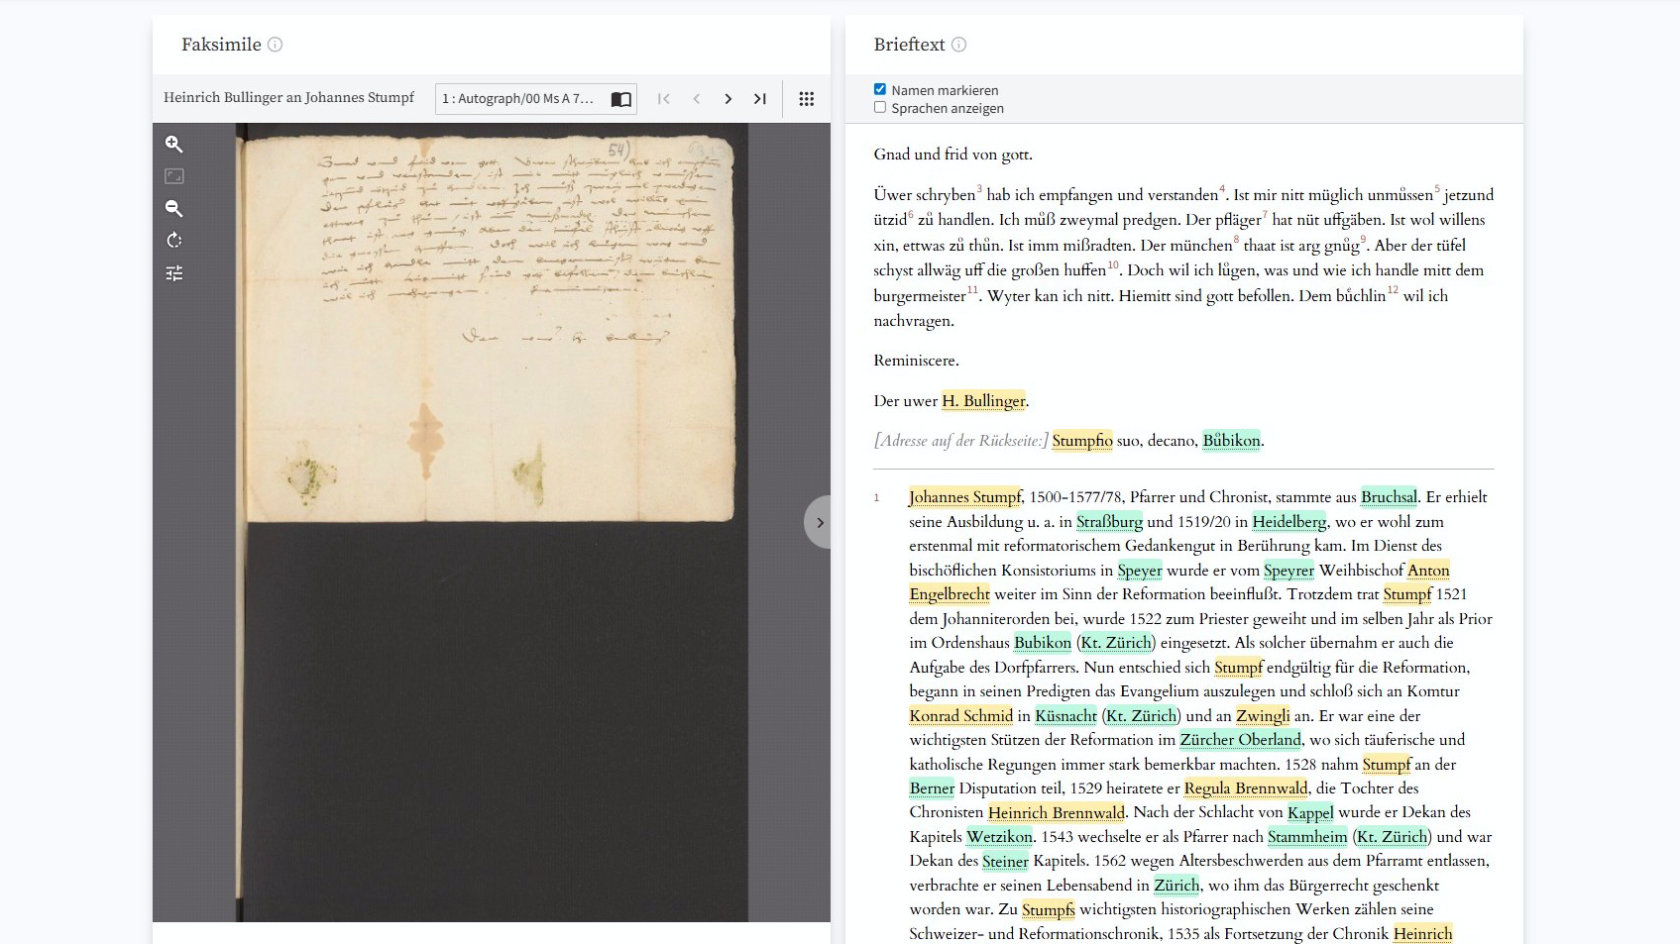 Faksimile
Heinrich Bullinger an Johannes Stumpf
1 : Autograph/00 Ms A 7...
54)
Brieftext
Namen markieren
Sprachen anzeigen
Gnad und frid von gott.
Üwer schryben3 hab ich empfangen und verstanden4. Ist mir nitt müglich unmůssen5 jetzund
ützid6 zů handlen. Ich můß zweymal predgen. Der pfläger7 hat nüt uffgäben. Ist wol willens
xin, ettwas zů thůn. Ist imm mißradten. Der münchen8 thaat ist arg gnůg9. Aber der tüfel
schyst allwäg uff die großen huffen10. Doch wil ich lůgen, was und wie ich handle mitt dem
burgermeister11. Wyter kan ich nitt. Hiemitt sind gott befollen. Dem bůchlin12 wil ich
nachvragen.
Reminiscere.
Der uwer H. Bullinger.
[Adresse auf der Rückseite:] Stumpfio suo, decano, Bůbikon.
1 Johannes Stumpf, 1500-1577/78, Pfarrer und Chronist, stammte aus Bruchsal. Er erhielt
seine Ausbildung u. a. in Straßburg und 1519/20 in Heidelberg, wo er wohl zum
erstenmal mit reformatorischem Gedankengut in Berührung kam. Im Dienst des
bischöflichen Konsistoriums in Speyer wurde er vom Speyrer Weihbischof Anton
Engelbrecht weiter im Sinn der Reformation beeinflußt. Trotzdem trat Stumpf 1521
dem Johanniterorden bei, wurde 1522 zum Priester geweiht und im selben Jahr als Prior
im Ordenshaus Bubikon (Kt. Zürich) eingesetzt. Als solcher übernahm er auch die
Aufgabe des Dorfpfarrers. Nun entschied sich Stumpf endgültig für die Reformation,
begann in seinen Predigten das Evangelium auszulegen und schloß sich an Komtur
Konrad Schmid in Küsnacht (Kt. Zürich) und an Zwingli an. Er war eine der
wichtigsten Stützen der Reformation im Zürcher Oberland, wo sich täuferische und
katholische Regungen immer stark bemerkbar machten. 1528 nahm Stumpf an der
Berner Disputation teil, 1529 heiratete er Regula Brennwald, die Tochter des
Chronisten Heinrich Brennwald. Nach der Schlacht von Kappel wurde er Dekan des
Kapitels Wetzikon. 1543 wechselte er als Pfarrer nach Stammheim (Kt. Zürich) und war
Dekan des Steiner Kapitels. 1562 wegen Altersbeschwerden aus dem Pfarramt entlassen,
verbrachte er seinen Lebensabend in Zürich, wo ihm das Bürgerrecht geschenkt
worden war. Zu Stumpfs wichtigsten historiographischen Werken zählen seine
Schweizer- und Reformationschronik, 1535 als Fortsetzung der Chronik Heinrich